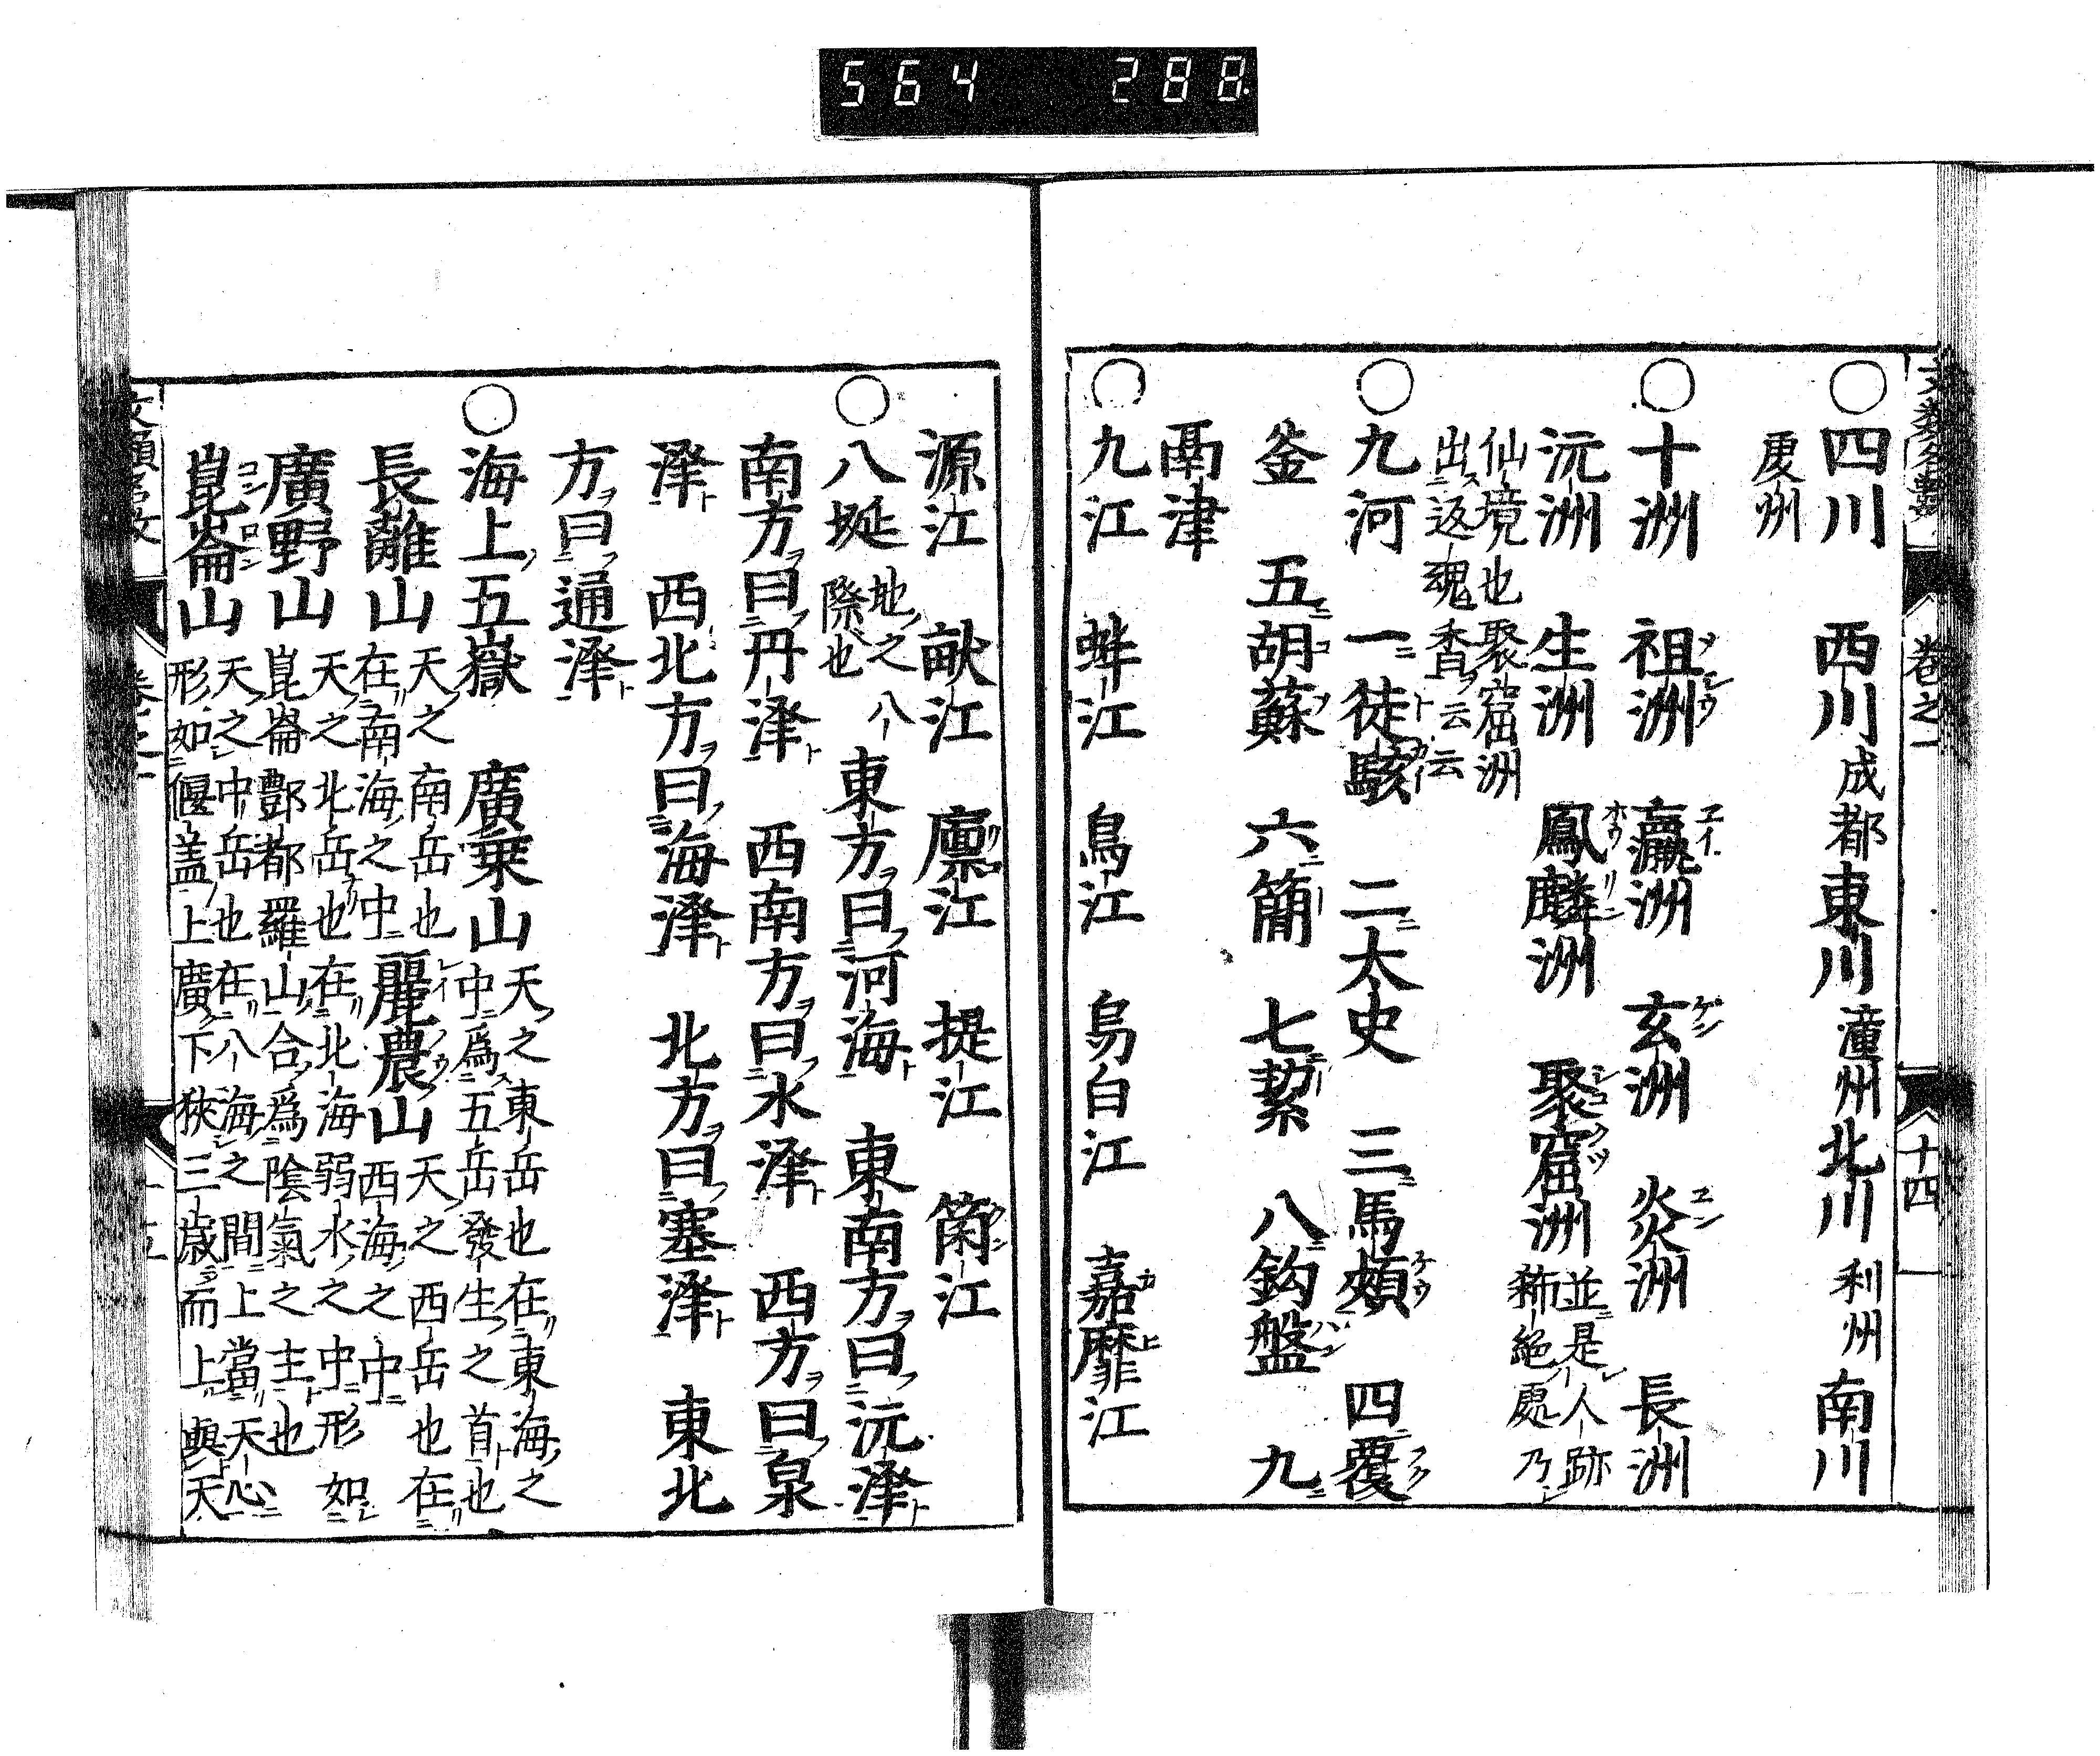 564 288
○四川 西川成都東川潼州北川利州南川
夔州
○十洲 祖洲 瀛洲 玄洲 炎洲 長洲
沅洲 生洲 鳳麟洲 聚窟洲 並是人跡稀絶處乃
仙境也聚窟洲出返魂香云云
○九河 一徒駭 二太史 三馬頰 四覆
釜 五胡蘇 六簡 七絜 八鈎盤 九
鬲津
○九江 蜯江 烏江 烏白江 嘉靡江
十四
源江 畎江 廩江 提江 箘江
○八埏 地之八際也 東方曰河海 東南方曰沅澤
南方曰丹澤 西南方曰水澤 西方曰泉
澤 西北方曰海澤 北方曰塞澤 東北
方曰通澤
○海上五嶽 廣乗山 天之東岳也在東海之中爲五岳發生之首也
長離山 天之南岳也在南海之中 麗農山 天之西岳也在西海之中
廣野山 天之北岳也在北海弱水之中形如崑崙酆都羅山合爲陰氣之主也
崑崙山 天之中岳也在八海之間上當天心形如偃盖上廣下狹三歳而上與天